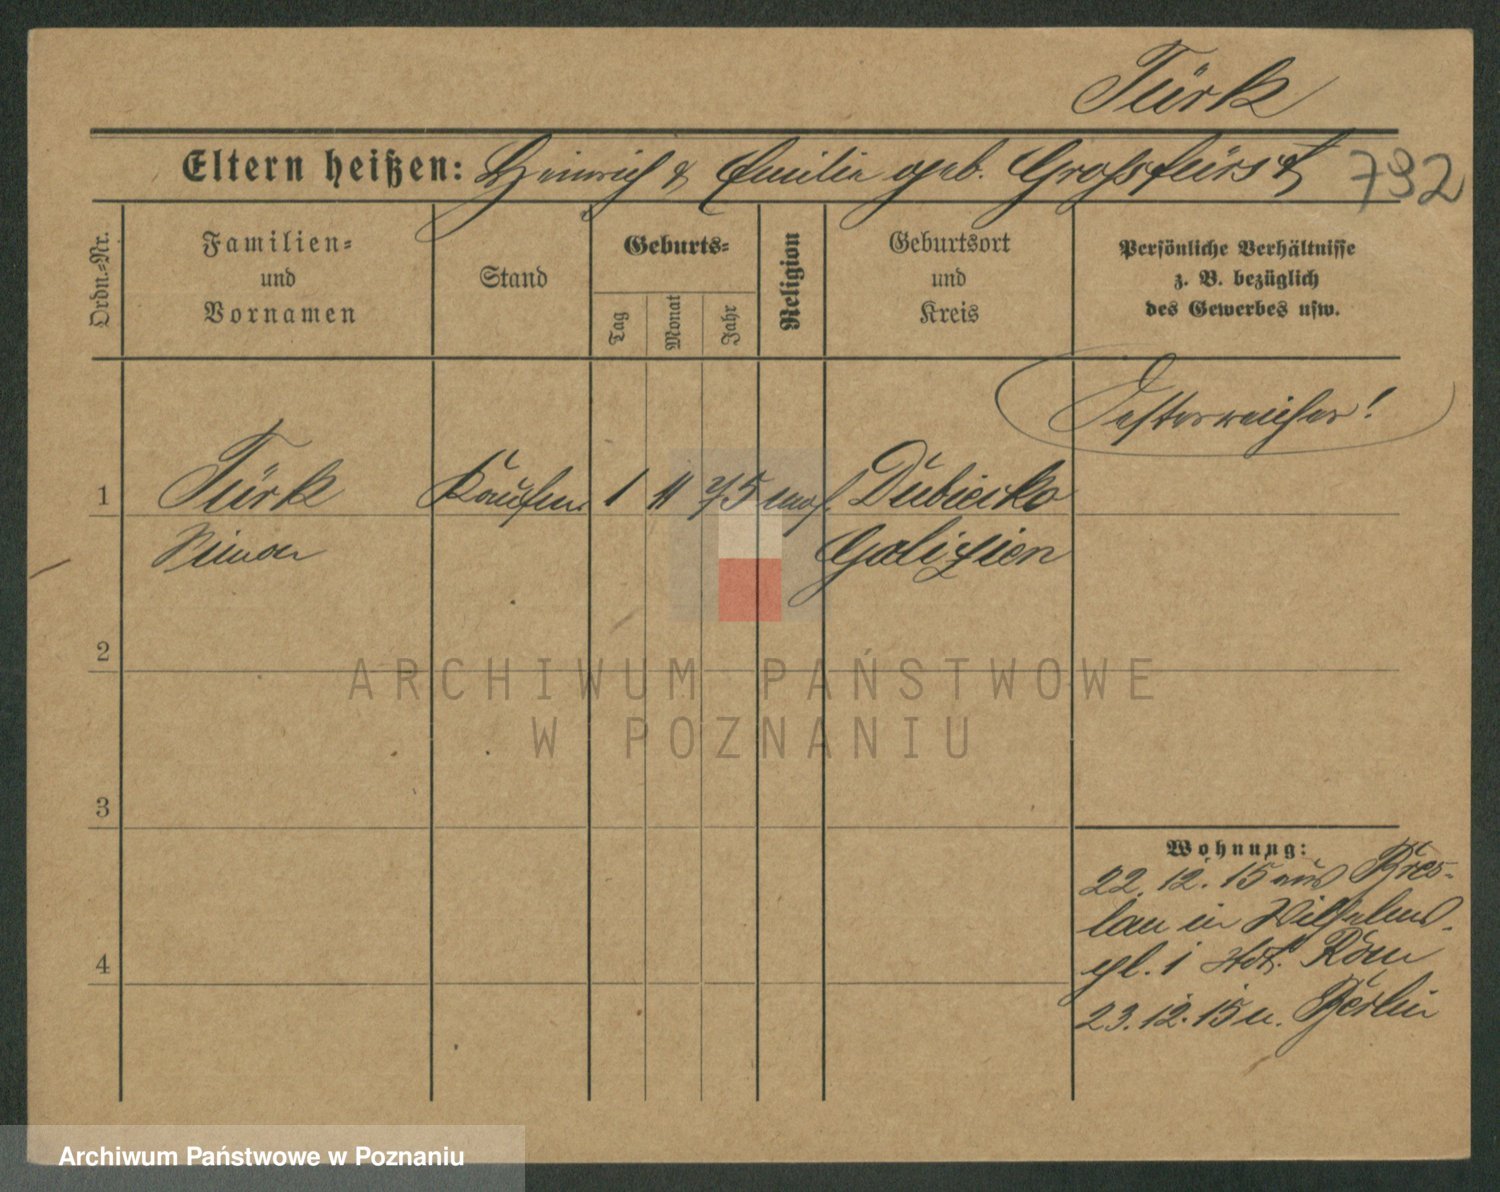 Türk
Eltern heißen: Heinrich & Emilie geb. Grossfürst
792
Ordn.-Nr.
Familien-
und
Vornamen
Stand
Geburts-
Tag
Monat
Jahr
Religion
Geburtsort
und
Kreis
Persönliche Verhältnisse
z. B. bezüglich
des Gewerbes usw.
Oesterreicher!
1 Türk Kaufm. 1 11 75 mos. Dubiecko
Galizien
2
ARCHIWUM PAŃSTWOWE
W POZNANIU
3
4
Wohnung:
22.12.15 aus Bres-
lau in Wilhelms-
pl. 1 Hot. Rom
23.12.15 n. Berlin
Archiwum Państwowe w Poznaniu